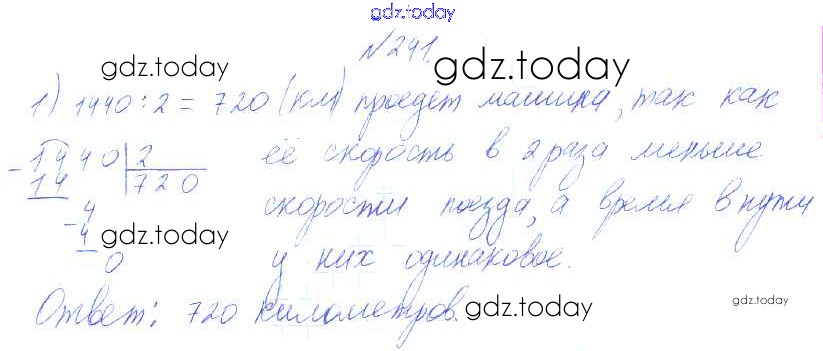 gdz.today
№241.
gdz.today
gdz.today
1) 1440:2=720 (км) проедет машина, так как
1440 2 её скорость в 2 раза меньше
14 720 скорости поезда, а время в пути
4
4 gdz.today
0 у них одинаковое.
gdz.today
gdz.today
Ответ: 720 километров.